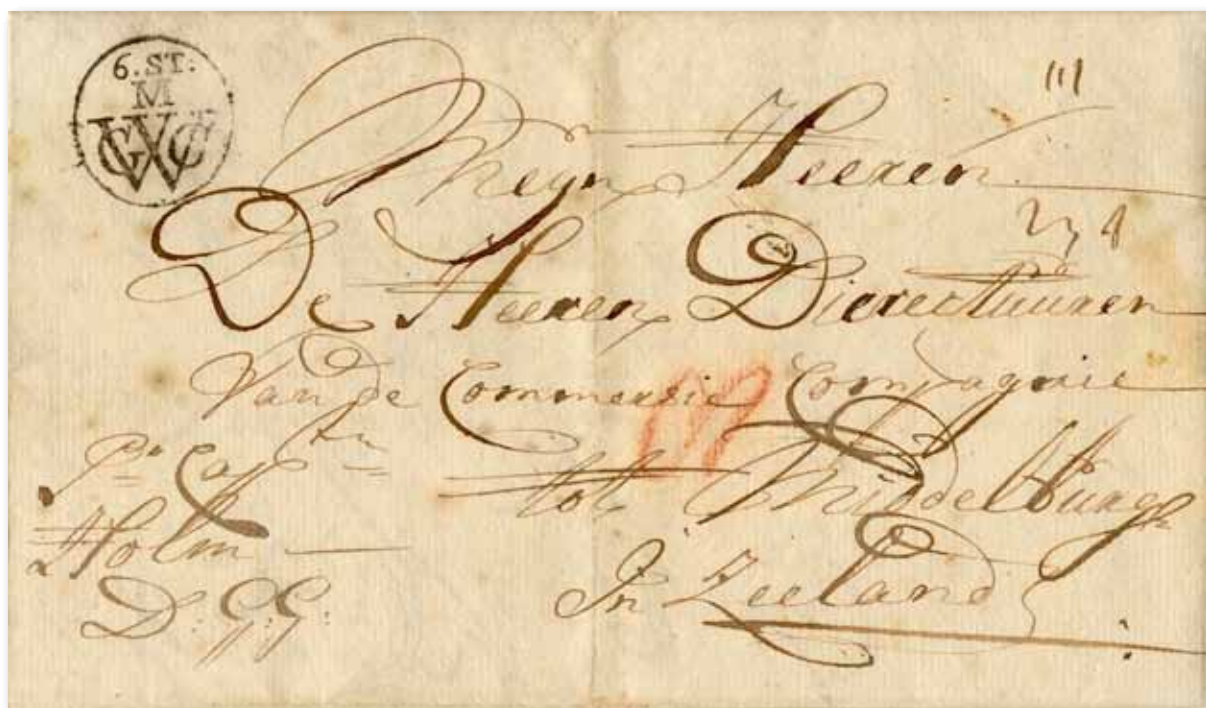 6. ST:
M
GWC
Meyn Heeren
De Heeren Direcktuuren
Van de Commersie Compagnie
tot Middelburgh
In Zeeland
Pr Captn
Holm
D: G: G: